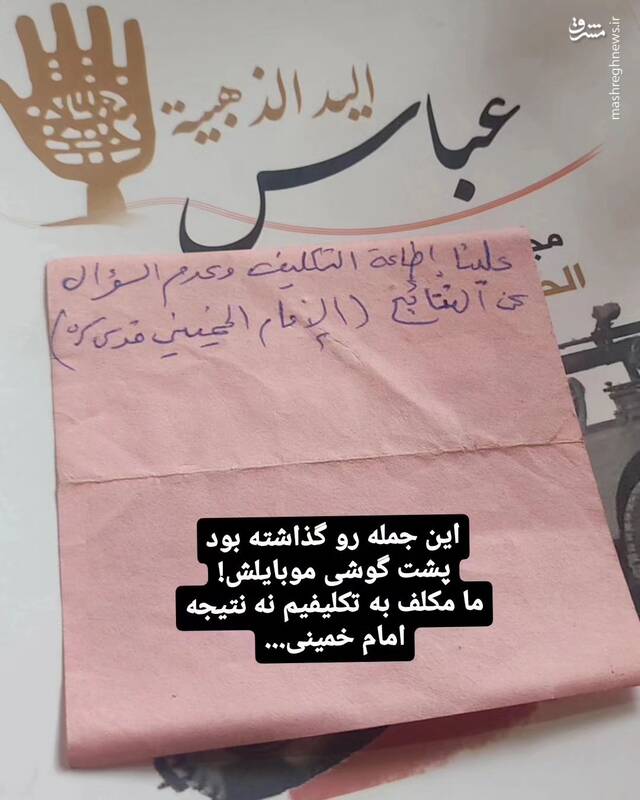 مشرق
mashreghnews.ir
اليد الذهبية
عباس
علينا إطاعة التكليف وعدم السؤال
عن النتائج (الإمام الخميني قدس سره)
این جمله رو گذاشته بود
پشت گوشی موبایلش!
ما مکلف به تکلیفیم نه نتیجه
امام خمینی...